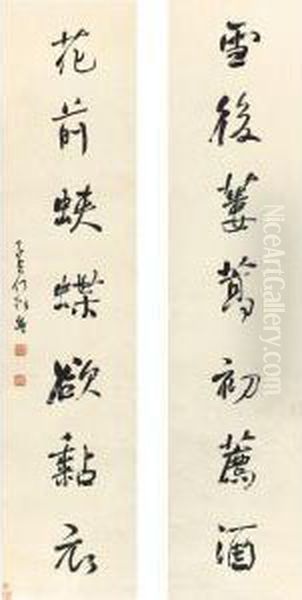 雪後蔞蒿初薦酒
花前蛺蝶欲黏衣
NiceArtGallery.com